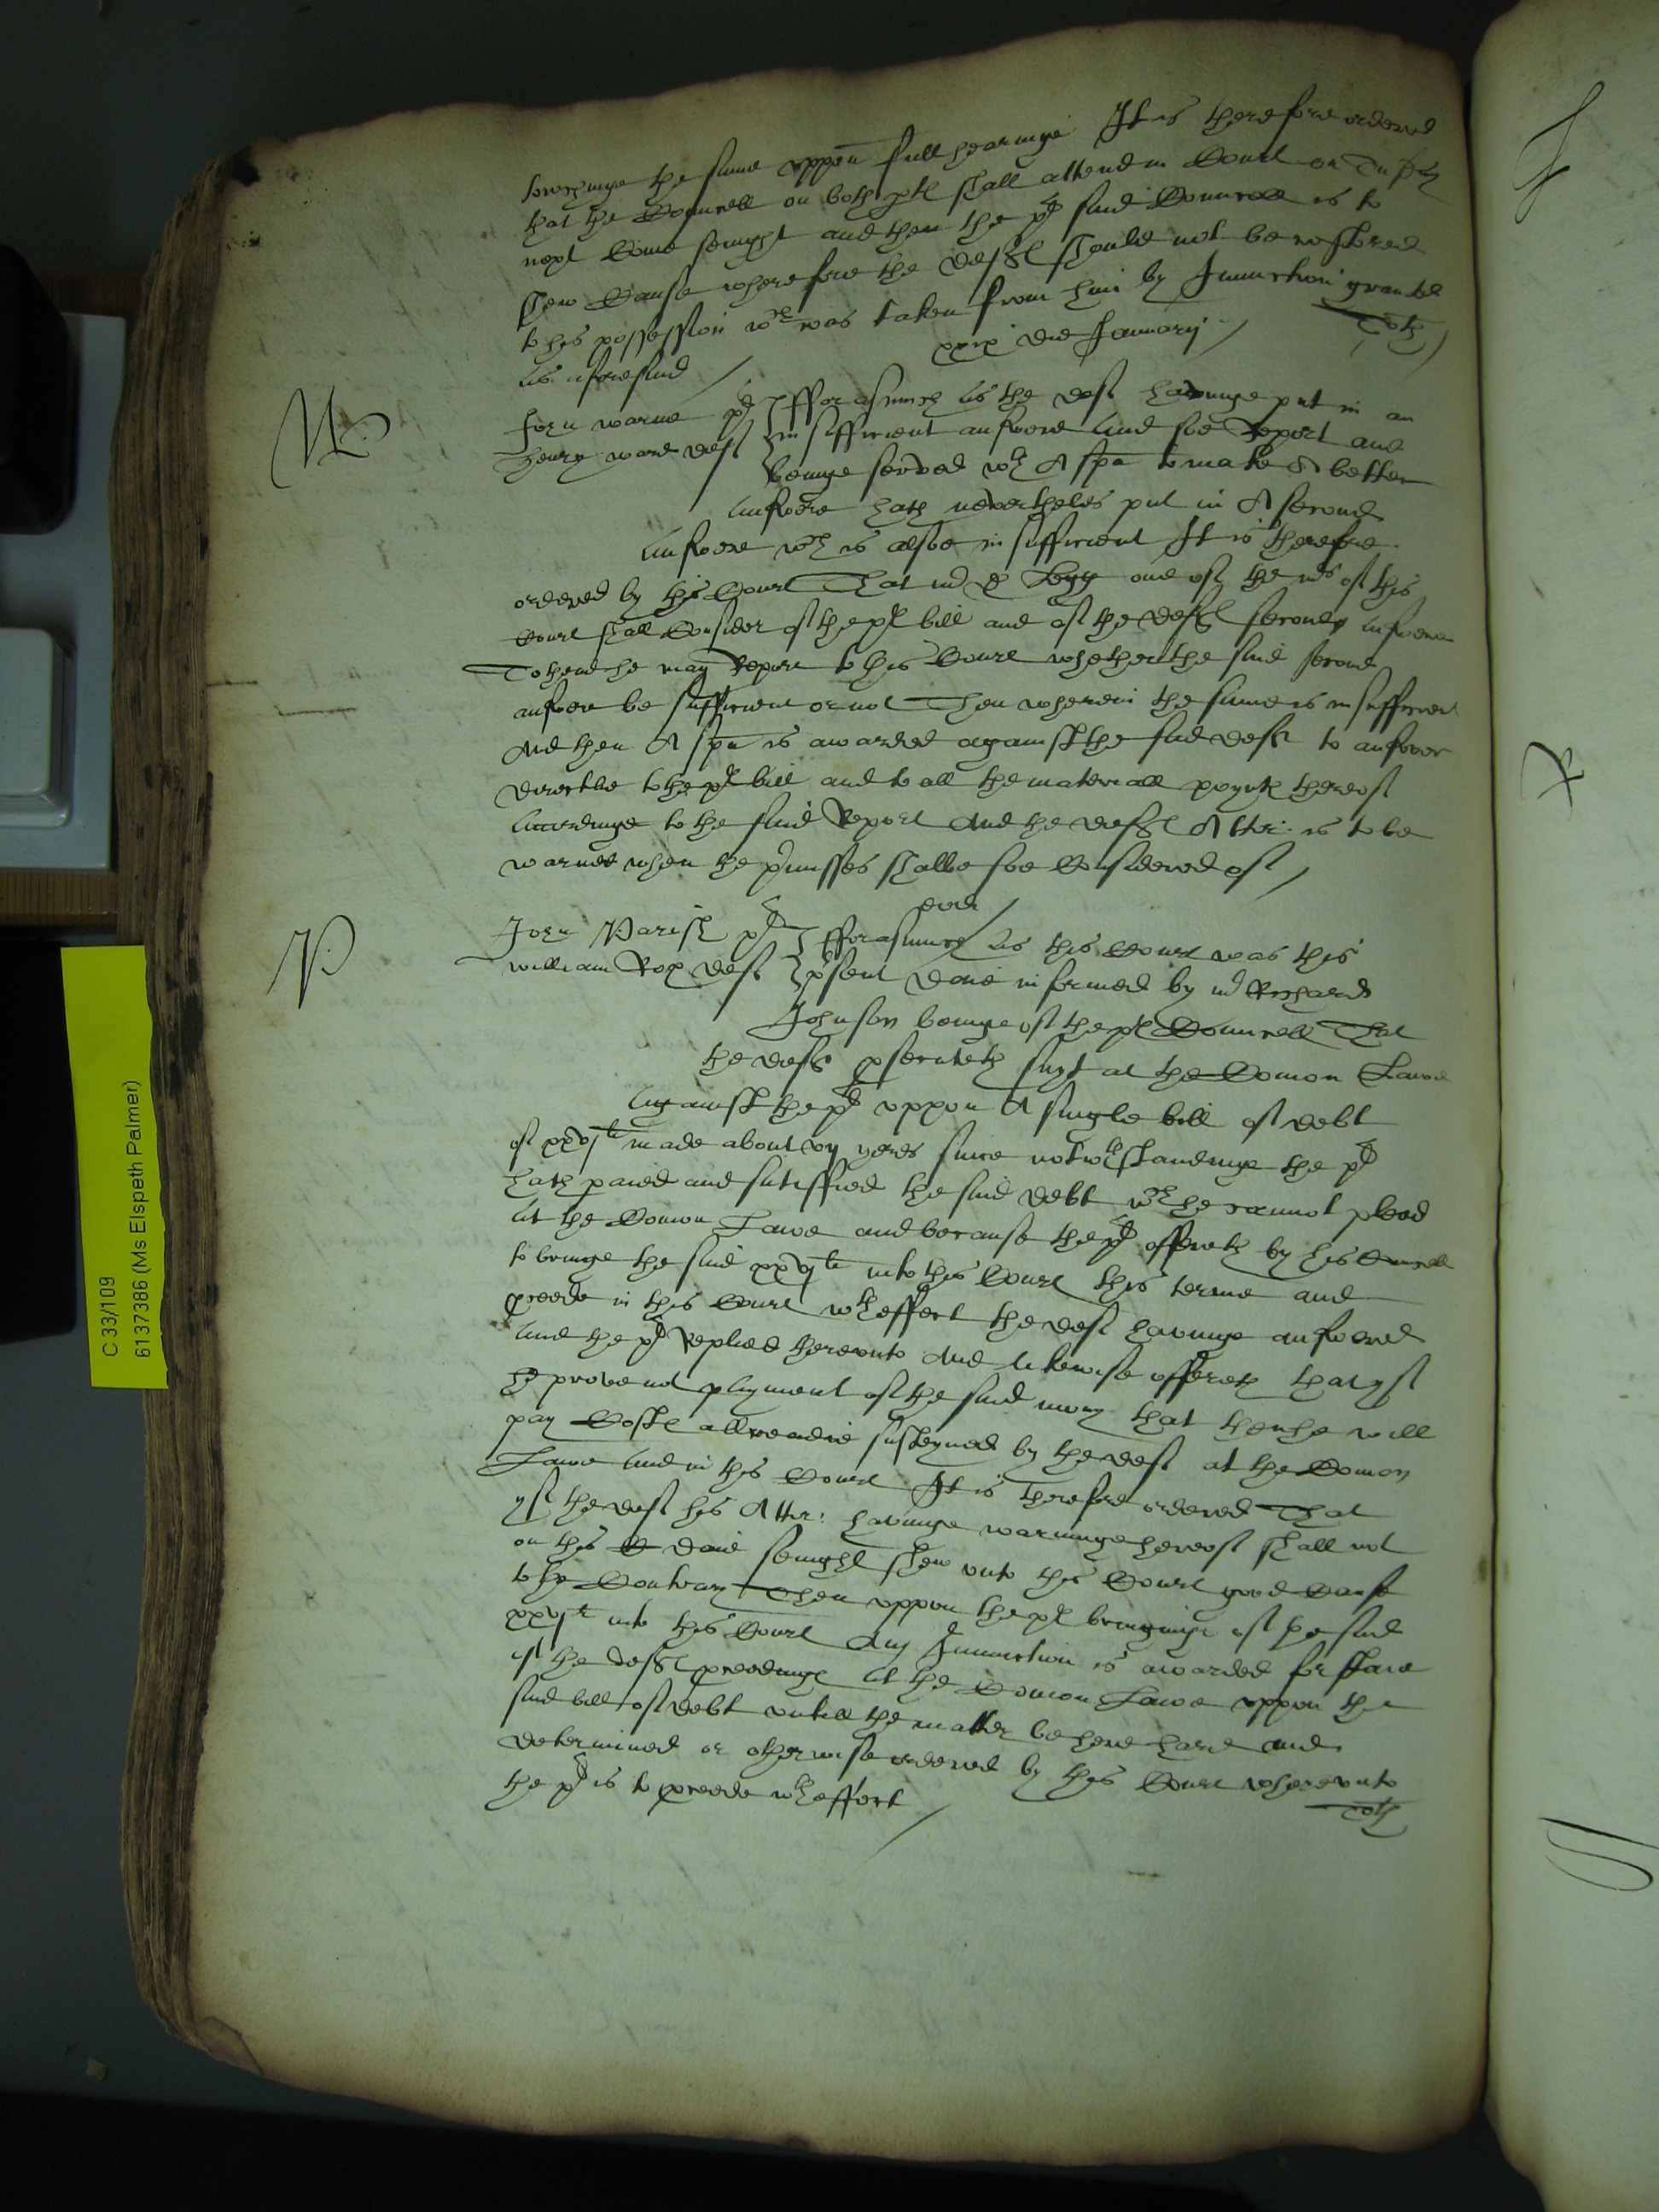 towchinge the same vppon full hearinge It is therefore ordered
that the Councell on both ptes shall attend in Court on
next Come sennight and then the pl said Councell is to
shew Cause wherefore the Defte should not be restored
to his possession wch was taken from him by Iniunction graunted
as aforesaid /
xxix die Januarij /
W
John warne pl } fforasmuch as the deft havinge put in an
Henry ward deft } insufficient answere and soe Report and
beinge served wth A spa to make A better
answere hath neverthelesse put in A second
answere wch is alsoe insufficient It is therefore
ordered by this Court That mr D Legg one of the mrs of this
Court shall Consider of the ple bill and of the defte second answere
To thend he may Report to this Court whether the said second
answer be sufficient or not Then wherein the same is insufficient
And then A spa is awarded against the said deft to answer
directlie to the pl bill and to all the materiall poynte thereof
accordinge to the said Report And the defte Attr. is to be
warned when the pmisses shalbe soe Considered of /
P
eodem /
John Parish pl } fforasmuch as this Court was this
william Rox deft } psent daie informed by mr Richard
Johnson beinge of the ple Councell That
the deft psecuteth suyt at the Comon Lawe
against the pl vppon A single bill of debt
of xxvjli made about vij yeres since notwthstandinge the pl
hath paied and satisffied the said debt wch he cannot plead
at the Comon Lawe and because the pl offereth by his Councell
to bringe the said xxvjli into this Court this terme and
pceede in this Court wth effect the deft havinge answered
and the pl Replied therevnto And likewise offereth that yf
he prove not payment of the said mony that then he will
pay Coste allreadie susteyned by the deft at the Comon
Lawe and in this Court It is Therefore ordered That
yf the deft his Attr: havinge warninge hereof shall not
on this daie sennight shew vnto this Court good Cause
to the Contrary Then vppon the ple bringinge of the said
xxvjli into this Court An Iniunction is awarded for staie
of the defte pceedinge at the Comon Lawe vppon the
said bill of debt vntill the matter be here hard and
determined or otherwise ordered by this Court wherevnto
the pl is to pceede wth effect /
C 33/109
6137386 (Ms Elspeth Palmer)